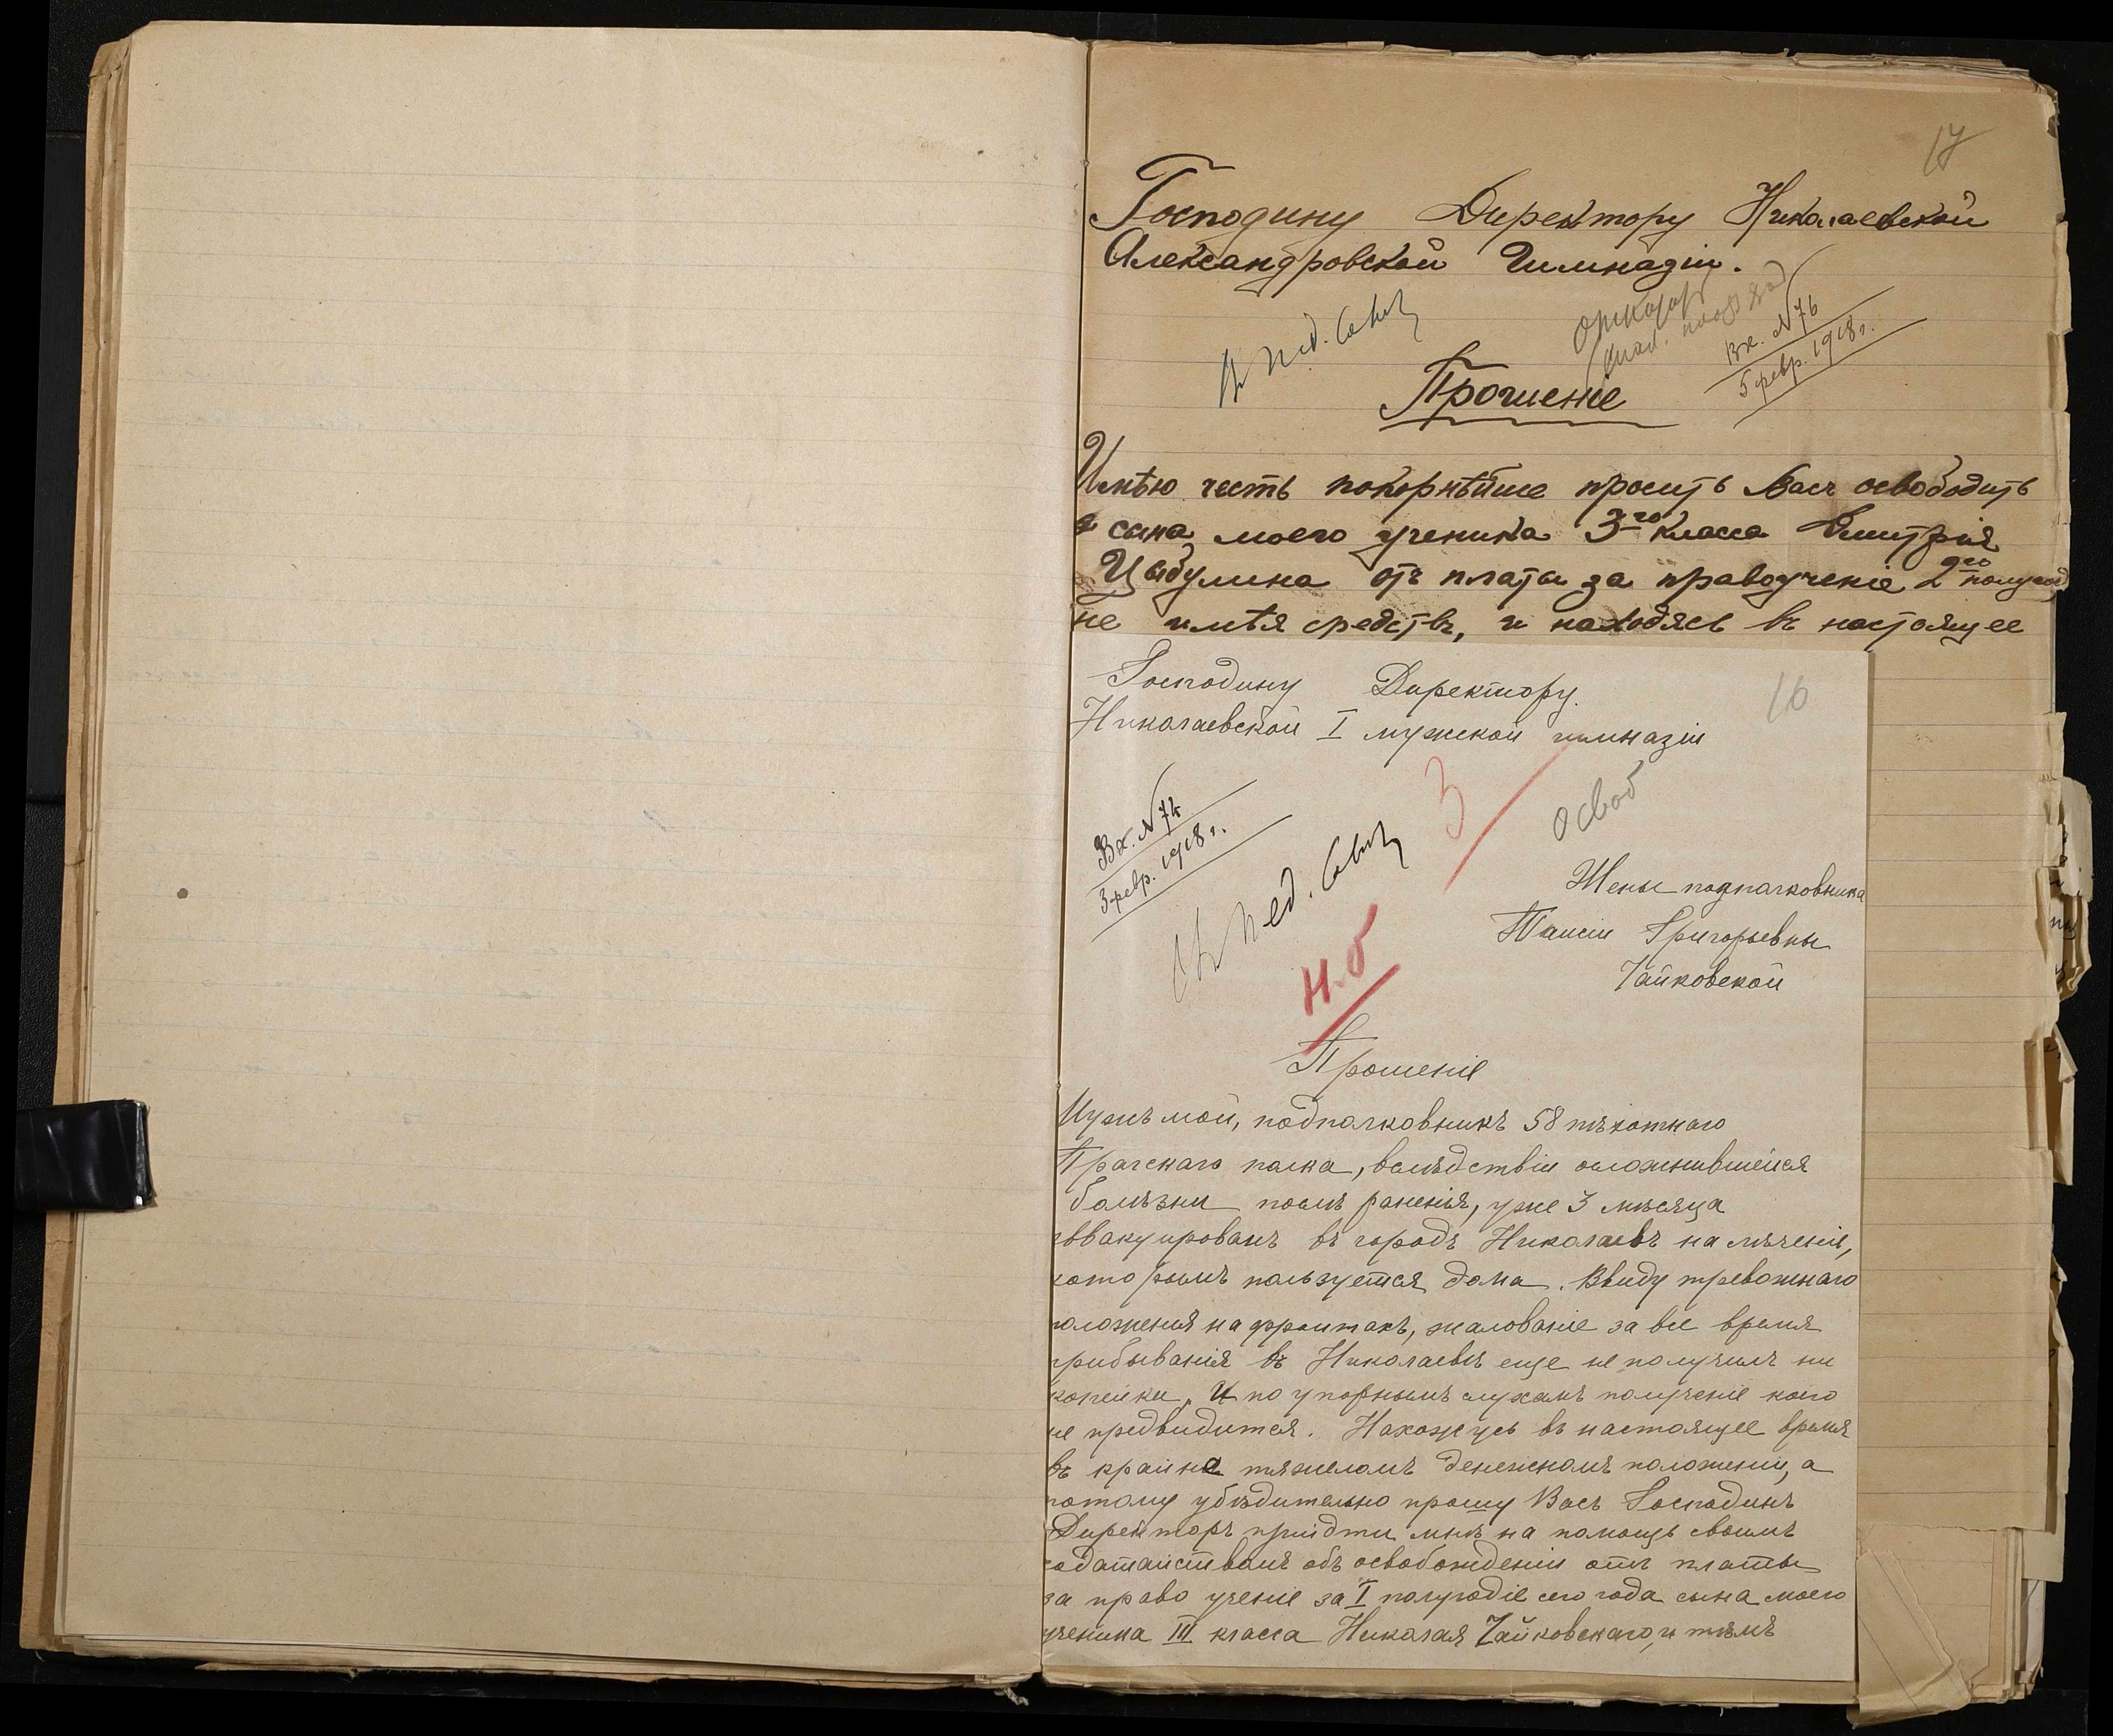 17
Господину Директору Николаевской
Александровской Гимназіи.
Въ Пед. Совѣтъ
отказать
Вх. №76
5 февр. 1918 г.
Прошеніе
Имѣю честь покорнѣйше просить Васъ освободить
сына моего ученика 3го класса Дмитрія
Цыбулина отъ платы за правоученіе 2го полугод
не имѣя средствъ, и находясь въ настоящее
16
Господину Директору.
Николаевской I мужской гимназіи
3
освоб
Вх. №74
3 февр. 1918 г.
Въ Пед. Совѣтъ
Жены подполковника
Таисіи Григорьевны
Чайковской
Н.б
Прошеніе
Мужъ мой, подполковникъ 58 пѣхотнаго
Прагскаго полка, вслѣдствіи осложнившейся
болѣзни послѣ раненія, уже 3 мѣсяца
эввакуированъ въ городъ Николаевъ на лѣченіе,
которымъ пользуется дома. Ввиду тревожнаго
положенія на фронтахъ, жалованіе за все время
прибыванія въ Николаевѣ еще не получилъ ни
копейки, и по упорнымъ слухамъ полученіе коего
не предвидится. Нахожусь въ настоящее время
въ крайне тяжеломъ денежномъ положеніи, а
потому убѣдительно прошу Васъ Господинъ
Директоръ прийдти мнѣ на помощь своимъ
ходатайствомъ объ освобожденіи отъ платы
за право ученіе за I полугодіе сего года сына моего
ученика III класса Николая Чайковскаго, и тѣмъ